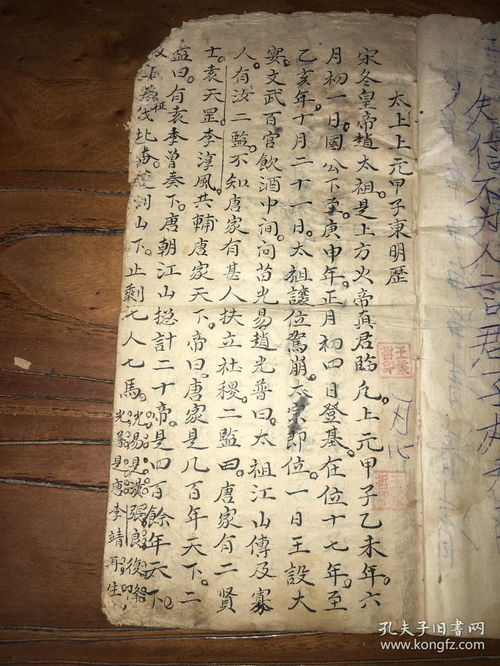 太上上元甲子東明歷
宋冬皇帝趙太祖。是上方火帝真君臨凡。上元甲子乙未年。六
月初一日國公下。庚申年。正月初四日登基。在位十七年。至
乙亥年。十月二十一日。太祖讓位駕崩。太宗即位。一日王設大
宴。文武百官飲酒中间。问苗光易趙光普曰。太祖江山傳及寡
人。有汝二監。不知唐家有甚人扶立社稷。二監曰。唐家有二賢
士。袁天罡。李淳風。共輔唐家天下。帝曰。唐家是几百年天下。二
監曰。有袁李曾奏下。唐朝江山。捴計二十帝。是四百餘年天下。
征
伐北。山下。止剩七人七馬。
光易是漢張良復
光普是唐李靖再生
失信不
言君子
王
王
孔夫子旧书网
www.kongfz.com